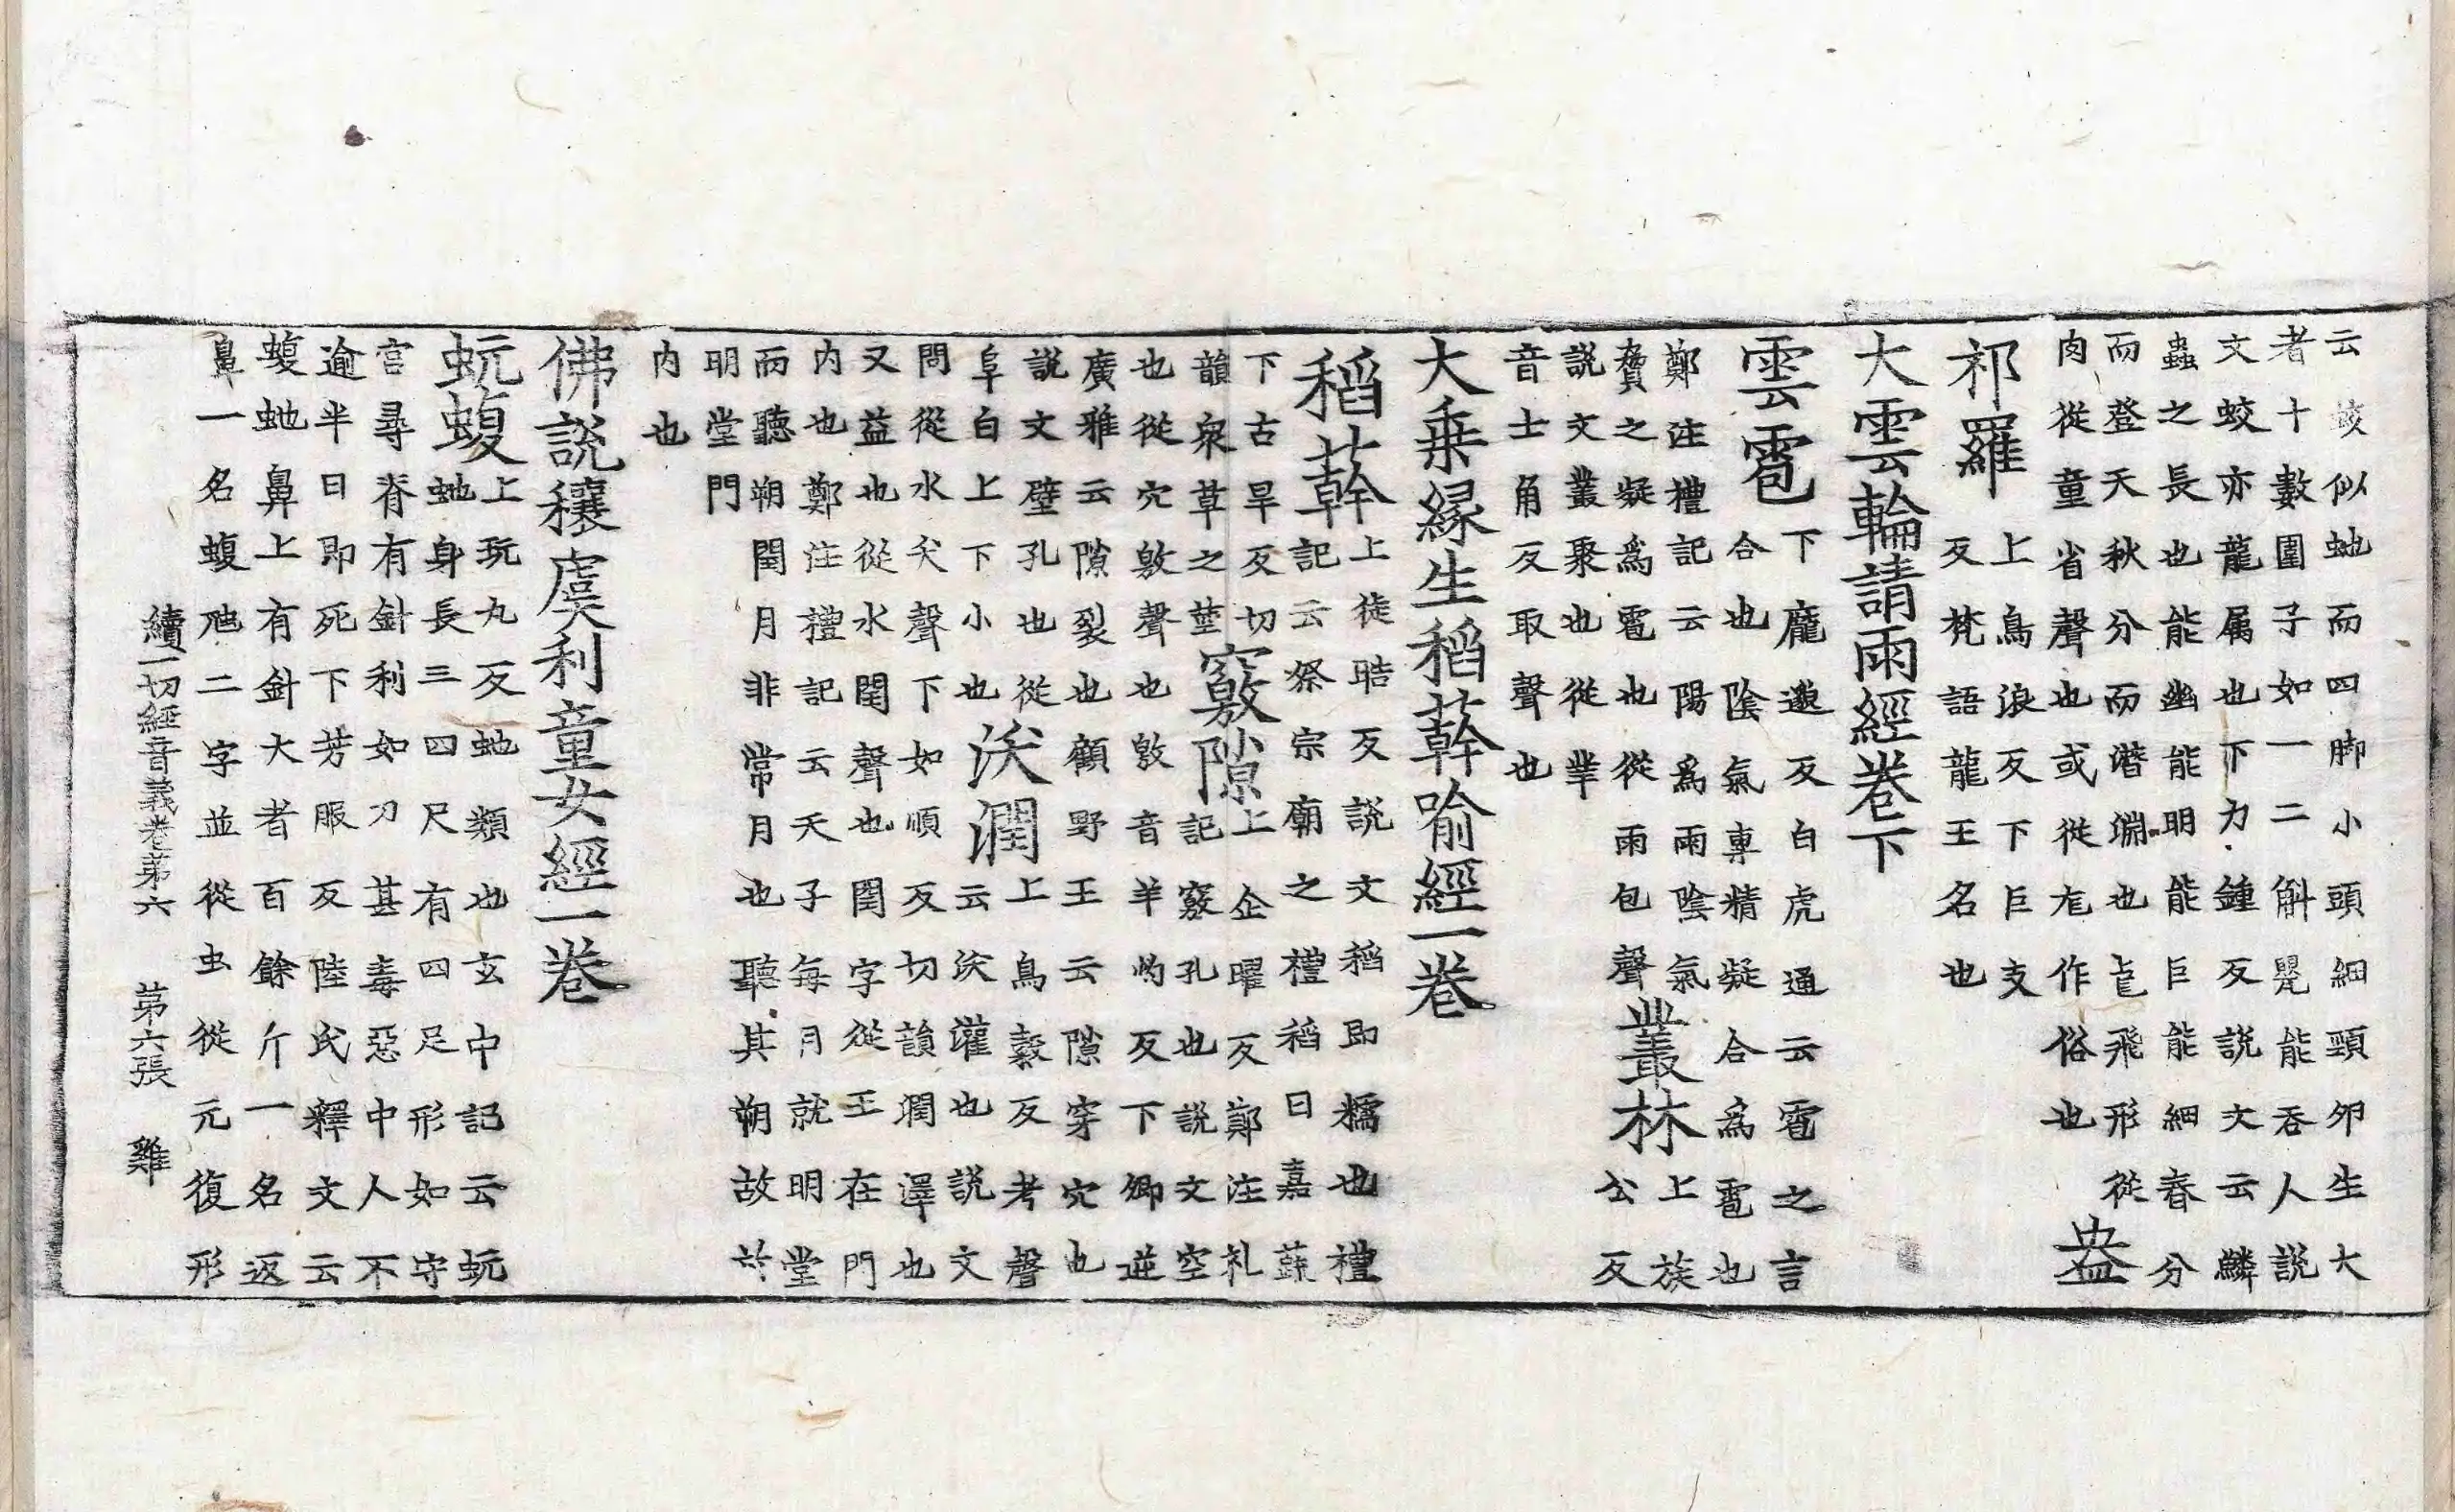 云蛟似虵而四脚小頭細頸夘生大
者十數圍子如一二斛㼜能吞人說
文蛟亦龍属也下力鍾反說文云鱗
蟲之長也能幽能明能巨能細春分
而登天秋分而潛渊也皀飛形從
肉從童省聲也或從尨作俗也 盎
祁羅 上烏浪反下巨支
反梵語龍王名也
大雲輪請雨經卷下
雲雹 下龐邈反白虎通云雹之言
合也隂氣專精凝合為雹也
鄭注禮記云陽為雨隂氣
脅之凝為雹也從雨包聲 叢林 上族
公反
說文叢聚也從丵
音士角反取聲也
大乗縁生稻䕀喻經一卷
稻䕀 上徒晧反說文稻即稬也禮
記云祭宗廟之禮稻曰嘉蔬
下古旱反切
韻衆草之莖 竅隙 上企曜反鄭注礼
記竅孔也說文空
也從穴敫聲也敫音羊灼反下卿逆
廣雅云隙裂也顧野王云隙穿穴也
說文壁孔也從
阜白上下小也 渶潤 上烏縠反考聲
云渶灌也說文
問從水㳄聲下如順反切韻潤澤也
又益也從水閏聲也閏字從王在門
内也鄭注禮記云天子每月就明堂
而聽朔閏月非常月也聽其朔故於
明堂門
内也
佛說穰虞利童女經一卷
蚖蝮 上玩丸反虵類也玄中記云蚖
虵身長三四尺有四足形如守
宫尋脊有針利如刀甚毒惡中人不
逾半日即死下芳服反陸氏釋文云
蝮虵鼻上有針大者百餘斤一名返
鼻一名蝮虺二字並從虫從元復形
續一切經音義卷苐六 苐六張 雞